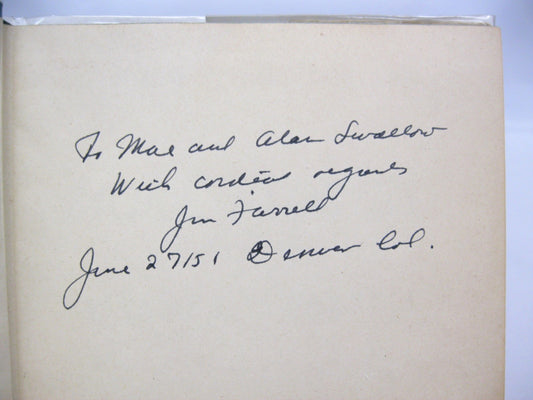 To Mae and Alan Swallow
With cordial regards
Jim Farrell
June 27/51 Denver Col.